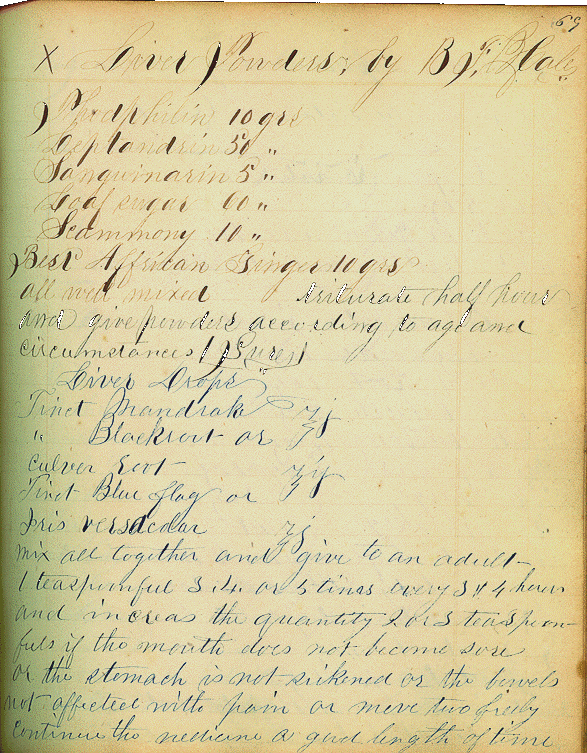 69
X Liver Powders, by B. F.
Phodphilin 10 grs
Leptandrin 50 "
Sanguinarin 5 "
Loaf sugar 60 "
Scammony 10 "
Best Affrican Ginger 10 grs
all well mixed triturate half hour
and give powders according to age and
circumstances ( Sure )
Liver Drops "
Tinct Mandrake ʒj
" Blackroot or
Culver Root ʒij
Tinct Blue flag or
Iris versacolar ʒj
mix all together and give to an adult
1 teaspoonful 3 4 or 5 times every 3 or 4 hours
and increas the quantity 2 or 3 teaspoon-
fuls if the mouth does not become sore
or the stomach is not sickened or the bowels
not affected with pain or move two freely
continue the medicine a good length of time